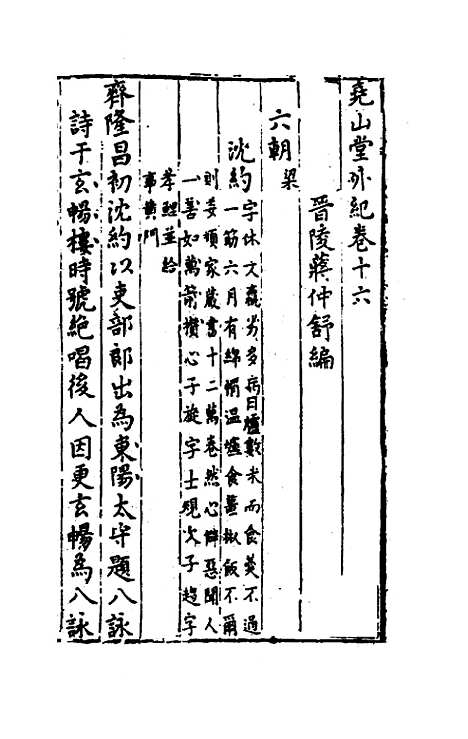 堯山堂外紀卷十六
晉陵蔣仲舒編
六朝 梁
沈約 字休文羸劣多病日檯數米而食羹不過
一筯六月有綿㡌溫爐食薑椒飯不爾
則委頓家藏書十二萬卷然心僻惡聞人
一善如萬箭攢心子旋字士規次子趨字
孝鯉並給
事黄門
齊隆昌初沈約以吏部郎出為東陽太守題八詠
詩于玄暢樓時號絶唱後人因更玄暢為八詠